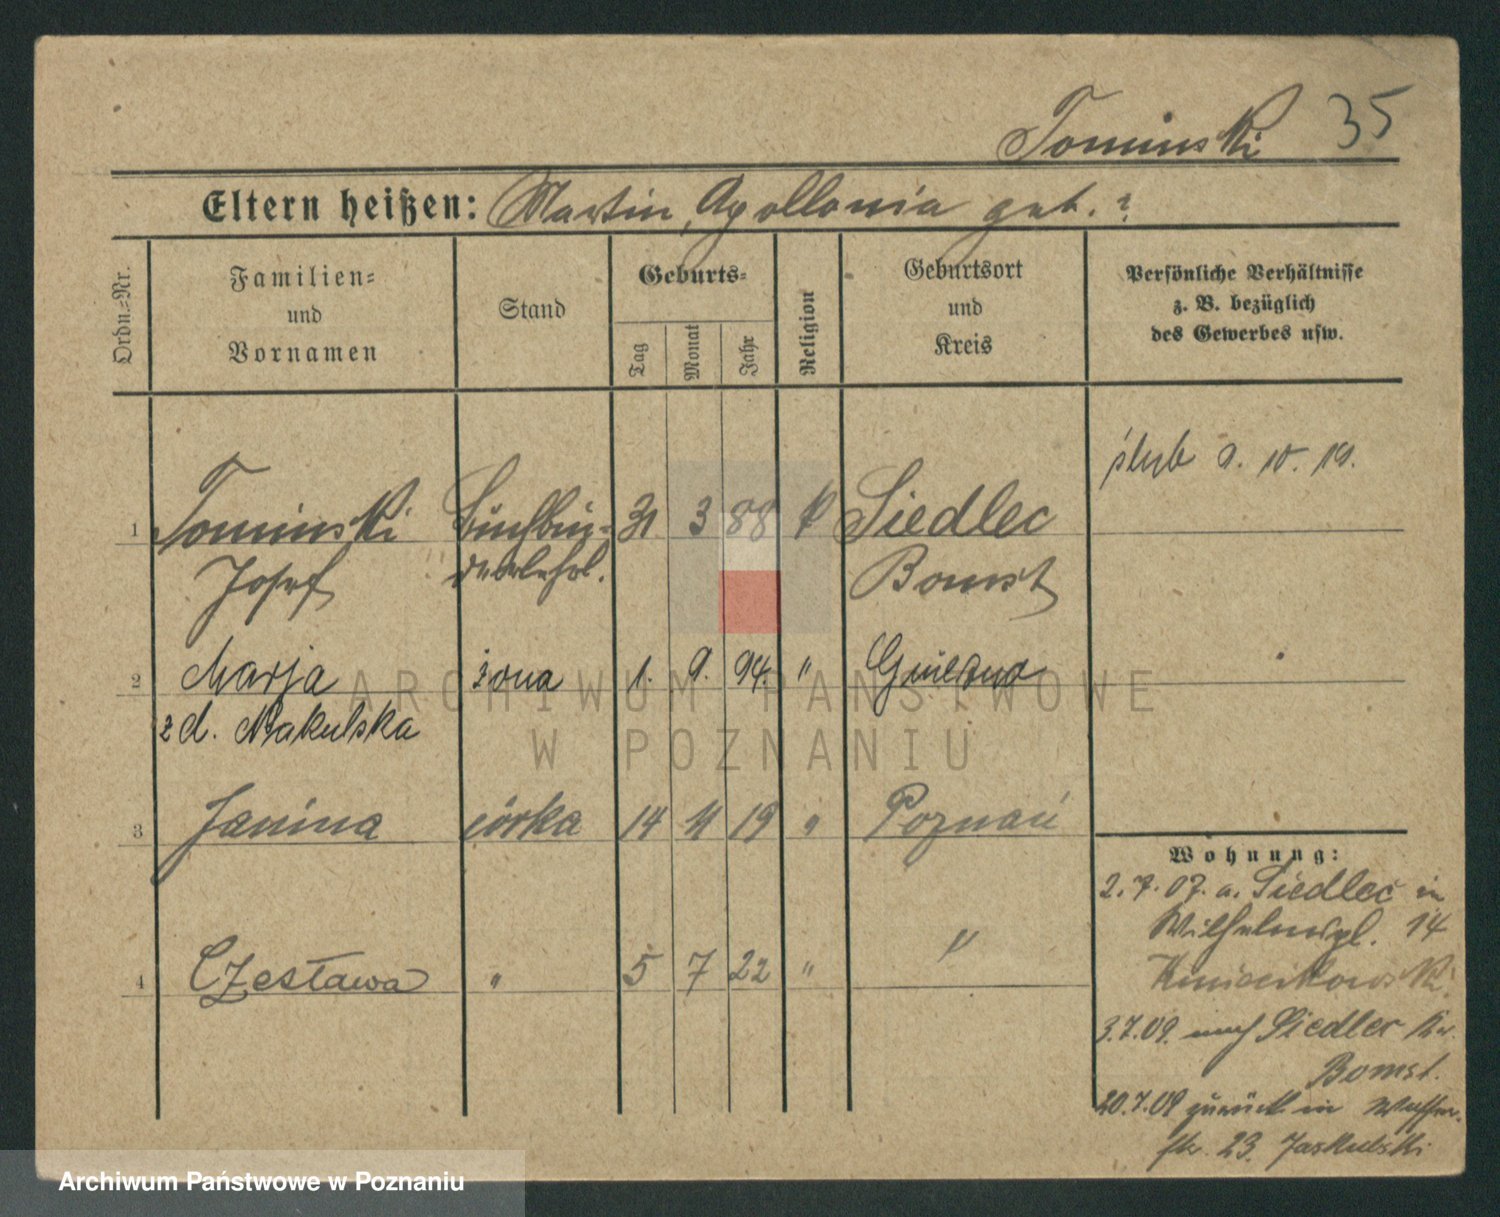 Tominski 35
Eltern heißen: Martin, Apollonia geb. ?
Ordn.=Nr.
Familien=
und
Vornamen
Stand
Geburts=
Tag
Monat
Jahr
Religion
Geburtsort
und
Kreis
Persönliche Verhältnisse
z. B. bezüglich
des Gewerbes usw.
ślub 9. 10. 19.
1 Tominski Buchbin= 31 3 88 k Siedlec
Josef derlehrl. Bomst
2 Marja żona 1. 9. 94. "
z d. Nakulska
3 Janina córka 14 11 19 " Poznań
4 Czesława " 5 7 22 " "
Wohnung:
2. 7. 07. a. Siedlec in
Wilhelmspl. 14
3.7.09. nach Siedlec Kr.
Bomst.
20.7.09 zurück in Wasser-
str. 23. Jaskulski
ARCHIWUM PAŃSTWOWE
W POZNANIU
Archiwum Państwowe w Poznaniu